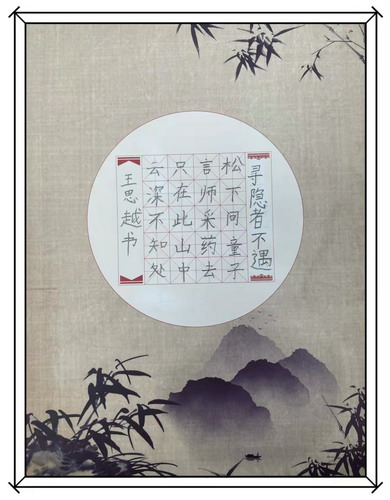 寻隐者不遇
松下问童子
言师采药去
只在此山中
云深不知处
王思越书